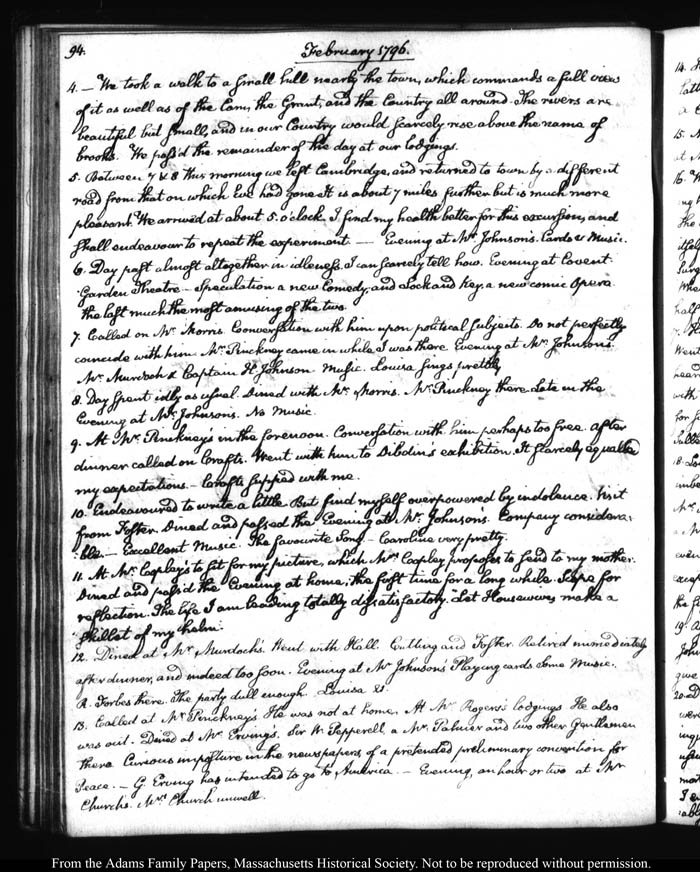 94.
February 1796.
4. — We took a walk to a small hill nearby the town, which commands a full view
of it as well as of the Cam, the Grant, and the Country all around. The rivers are
beautiful but small, and in our Country would scarcely rise above the name of
brooks. We pass'd the remainder of the day at our lodgings.
5. Between 7 & 8 this morning we left Cambridge, and returned to town by a different
road from that on which we had gone. It is about 7 miles further but is much more
pleasant. We arrived at about 5. o'clock. I find my health better for this excursion, and
shall endeavour to repeat the experiment — Evening at Mr. Johnson's. Cards & Music.
6. Day past almost altogether in idleness. I can scarcely tell how. Evening at Covent
Garden Theatre — Speculation a new Comedy, and Lock and Key, a new comic Opera
the last much the most amusing of the two.
7. Called on Mr. Morris. Conversation with him upon political subjects. Do not perfectly
coincide with him. Mr. Pinckney came in while I was there. Evening at Mr. Johnson's.
Mr. Murdoch & Captain Johnson. Music. Louisa sings prettily
8. Day spent idly as usual. Dined with Mr. Morris. Mr. Pinckney there. Late in the
Evening at Mr. Johnson's. No Music.
9. At Mr. Pinckney's in the forenoon. Conversation with him perhaps too free. After
dinner called on Crafts. Went with him to Dibdin's exhibition. It scarcely equalled
my expectations. — Crafts supped with me.
10. Endeavoured to write a little. But find myself overpowered by indolence. Visit
from Foster. Dined and passed the Evening at Mr. Johnson's. Company considera-
:ble. — Excellent Music. The favourite Song — Caroline very pretty.
11. At Mr. Copley's to sit for my picture, which Mrs. Copley proposes to send to my mother.
Dined and pass'd the Evening at home, the first time for a long while. Scope for
reflection. The life I am leading totally dissatisfactory. "Let Housewives make a
Skillet of my helm."
12. Dined at Mr. Murdoch's. Went with Hall. Cutting and Foster. Retired immediately
after dinner, and indeed too soon. Evening at Mr. Johnson's. Playing cards some Music.
R. Forbes there. The party dull enough. Louisa
13. Called at Mr. Pinckney's. He was not at home. At Mr. Rogers's lodgings. He also
was out. Dined at Mr. Erving's. Sir W. Pepperell, a Mr. Palmer and two other Gentlemen
there. Curious imposture in the newspapers, of a pretended preliminary convention for
Peace. — G. Erving has intended to go to America. — Evening, an hour or two at Mr.
Church's. Mrs. Church unwell.
From the Adams Family Papers, Massachusetts Historical Society. Not to be reproduced without permission.